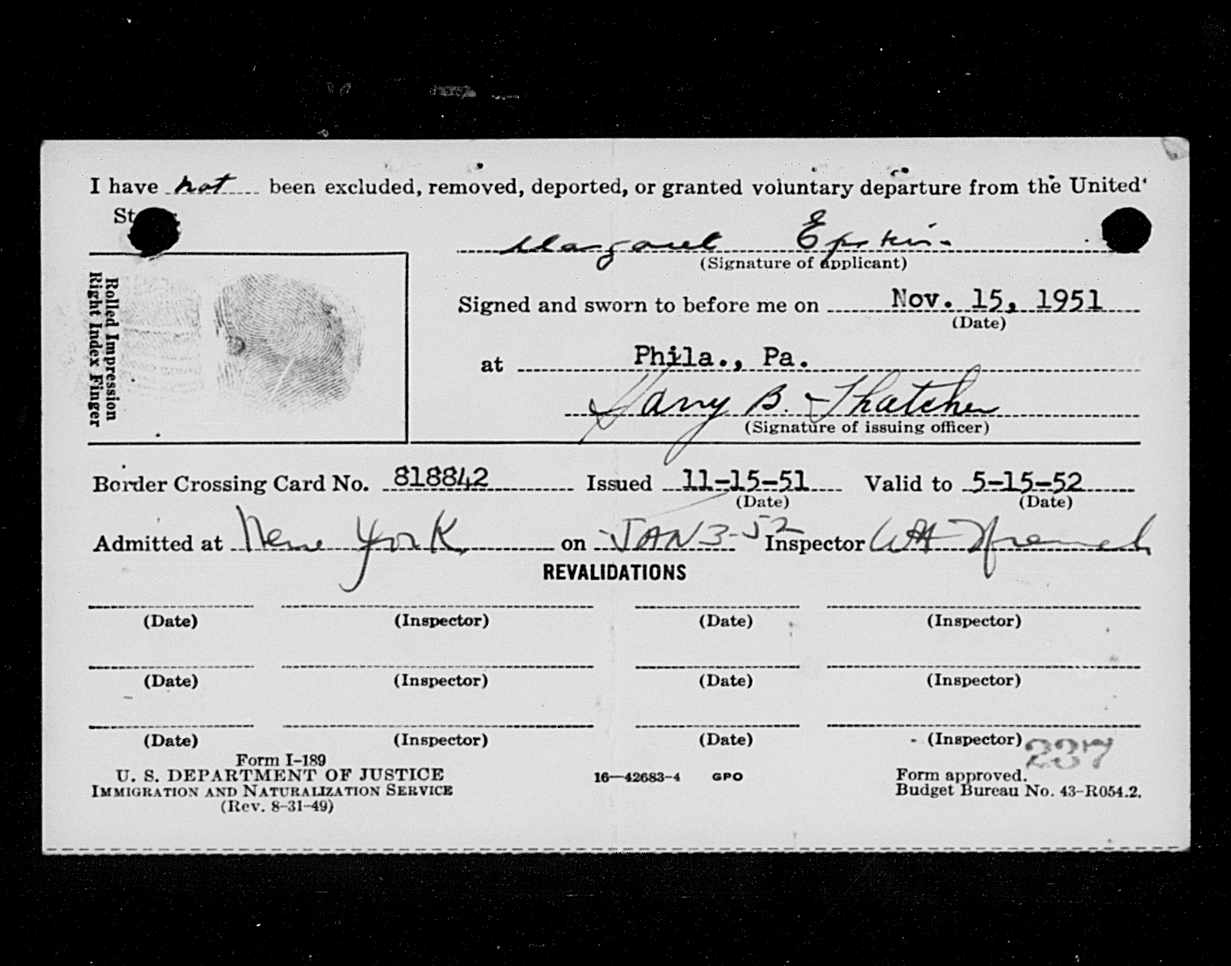 I have not been excluded, removed, deported, or granted voluntary departure from the United
St
Margaret Epskin
(Signature of applicant)
Rolled Impression
Right Index Finger
Signed and sworn to before me on Nov. 15, 1951
(Date)
at Phila., Pa.
Harry B. Thatcher
(Signature of issuing officer)
Border Crossing Card No. 818842 Issued 11-15-51 Valid to 5-15-52
(Date) (Date)
Admitted at New York on JAN 3-52 Inspector WH
REVALIDATIONS
(Date) (Inspector) (Date) (Inspector)
(Date) (Inspector) (Date) (Inspector)
(Date) (Inspector) (Date) (Inspector)
Form I-189
U. S. DEPARTMENT OF JUSTICE
IMMIGRATION AND NATURALIZATION SERVICE
(Rev. 8-31-49)
16—42683-4 GPO
237
Form approved.
Budget Bureau No. 43-R054.2.